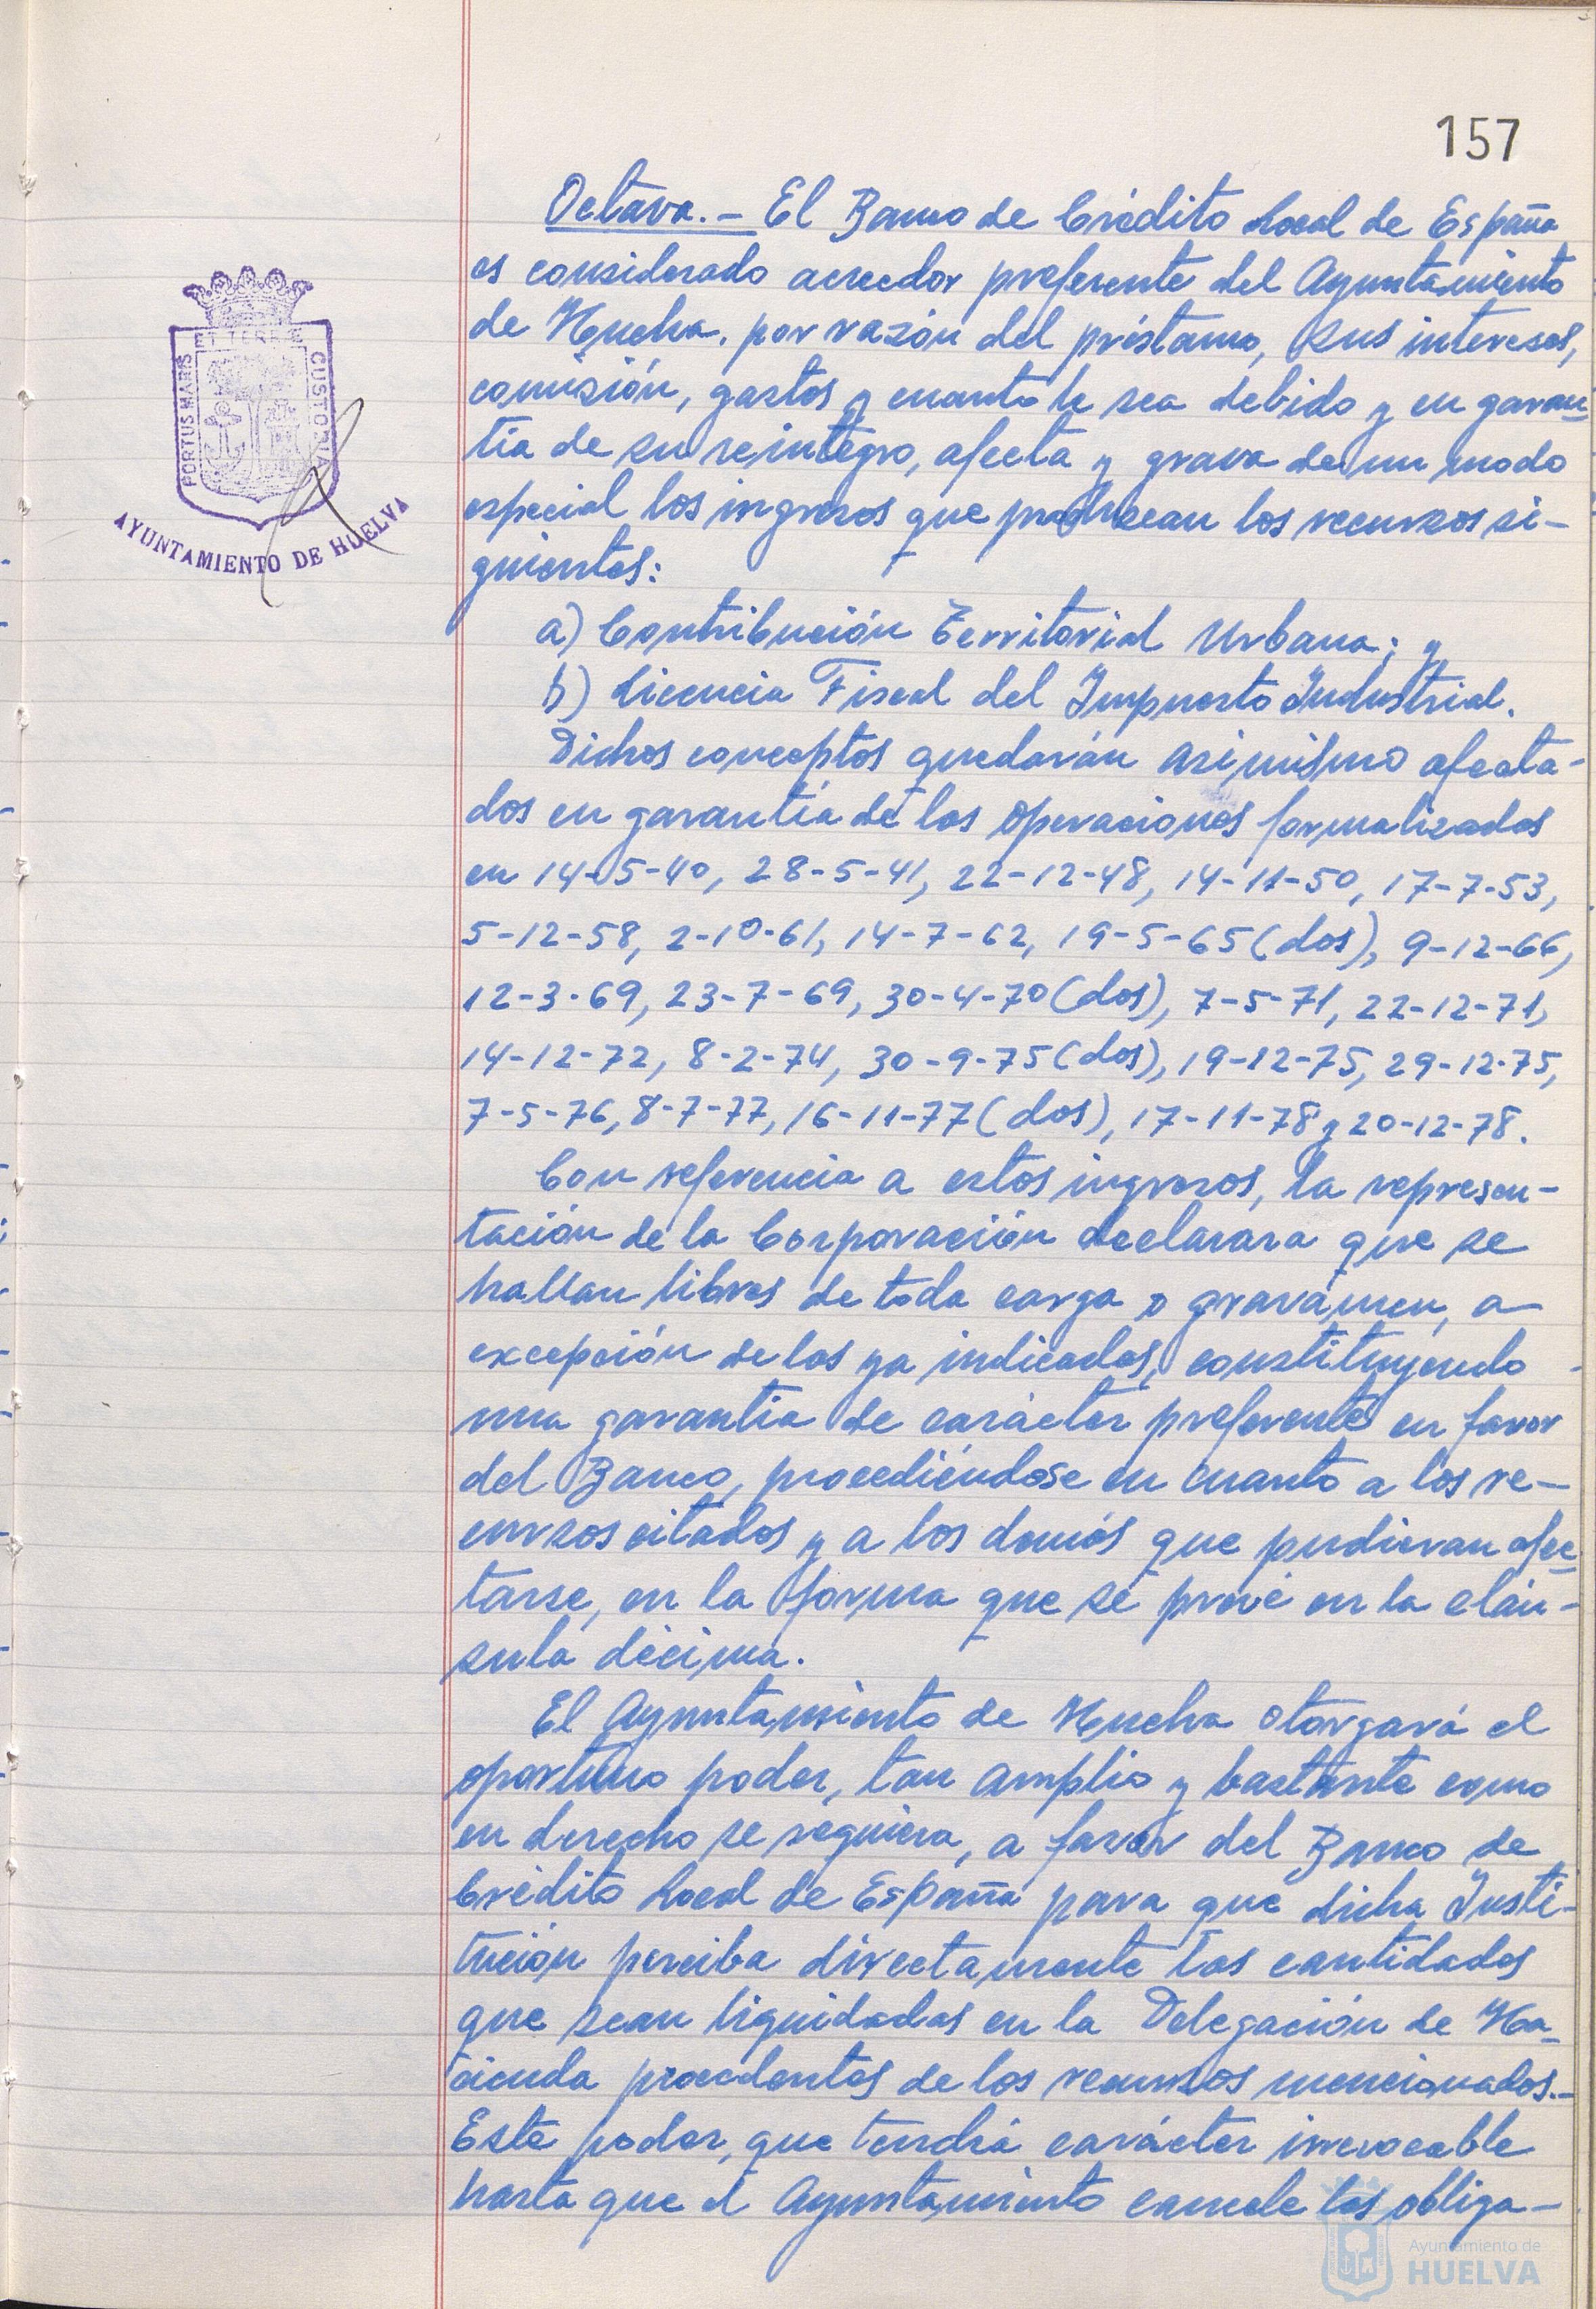 157
Octava.- El Banco de Crédito Local de España
es considerado acreedor preferente del Ayuntamiento
de Huelva, por razón del préstamo, sus intereses,
comisión, gastos y cuanto le sea debido y en garan
tía de su reintegro, afecta y grava de un modo
especial los ingresos que produzcan los recursos si-
guientes:
a) Contribución Territorial Urbana; y
b) Licencia Fiscal del Impuesto Industrial.
Dichos conceptos quedarán asimismo afecta-
dos en garantía de las operaciones formalizadas
en 14-5-40, 28-5-41, 22-12-48, 14-11-50, 17-7-53,
5-12-58, 2-10-61, 14-7-62, 19-5-65 (dos), 9-12-66,
12-3-69, 23-7-69, 30-4-70 (dos), 7-5-71, 22-12-71,
14-12-72, 8-2-74, 30-9-75 (dos), 19-12-75, 29-12-75,
7-5-76, 8-7-77, 16-11-77 (dos), 17-11-78 y 20-12-78.
Con referencia a estos ingresos, la represen-
tación de la Corporación declarara que se
hallan libres de toda carga o gravámen, a
excepción de las ya indicadas, constituyendo
una garantía de carácter preferente en favor
del Banco, procediéndose en cuanto a los re-
cursos citados y a los demás que pudieran afec
tarse, en la forma que se prevé en la cláu-
sula décima.
El Ayuntamiento de Huelva otorgará el
oportuno poder, tan amplio y bastante como
en derecho se requiera, a favor del Banco de
Crédito Local de España para que dicha Insti-
tución perciba directamente las cantidades
que sean liquidadas en la Delegación de Ha-
cienda procedentes de los recursos mencionados.-
Este poder, que tendrá carácter irrevocable
hasta que el Ayuntamiento cancele las obliga-
PORTUS MARIS ET TERRE CUSTODIA
AYUNTAMIENTO DE HUELVA
Ayuntamiento de
HUELVA